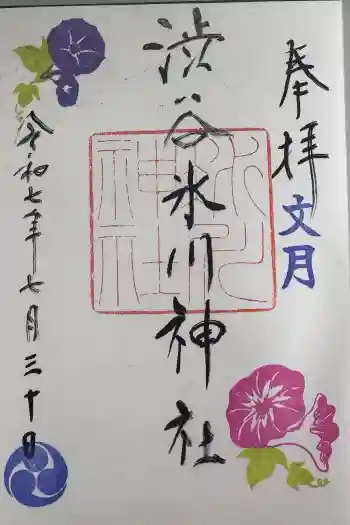 奉拝
文月
渋谷氷川神社
氷川神社
令和七年七月三十日